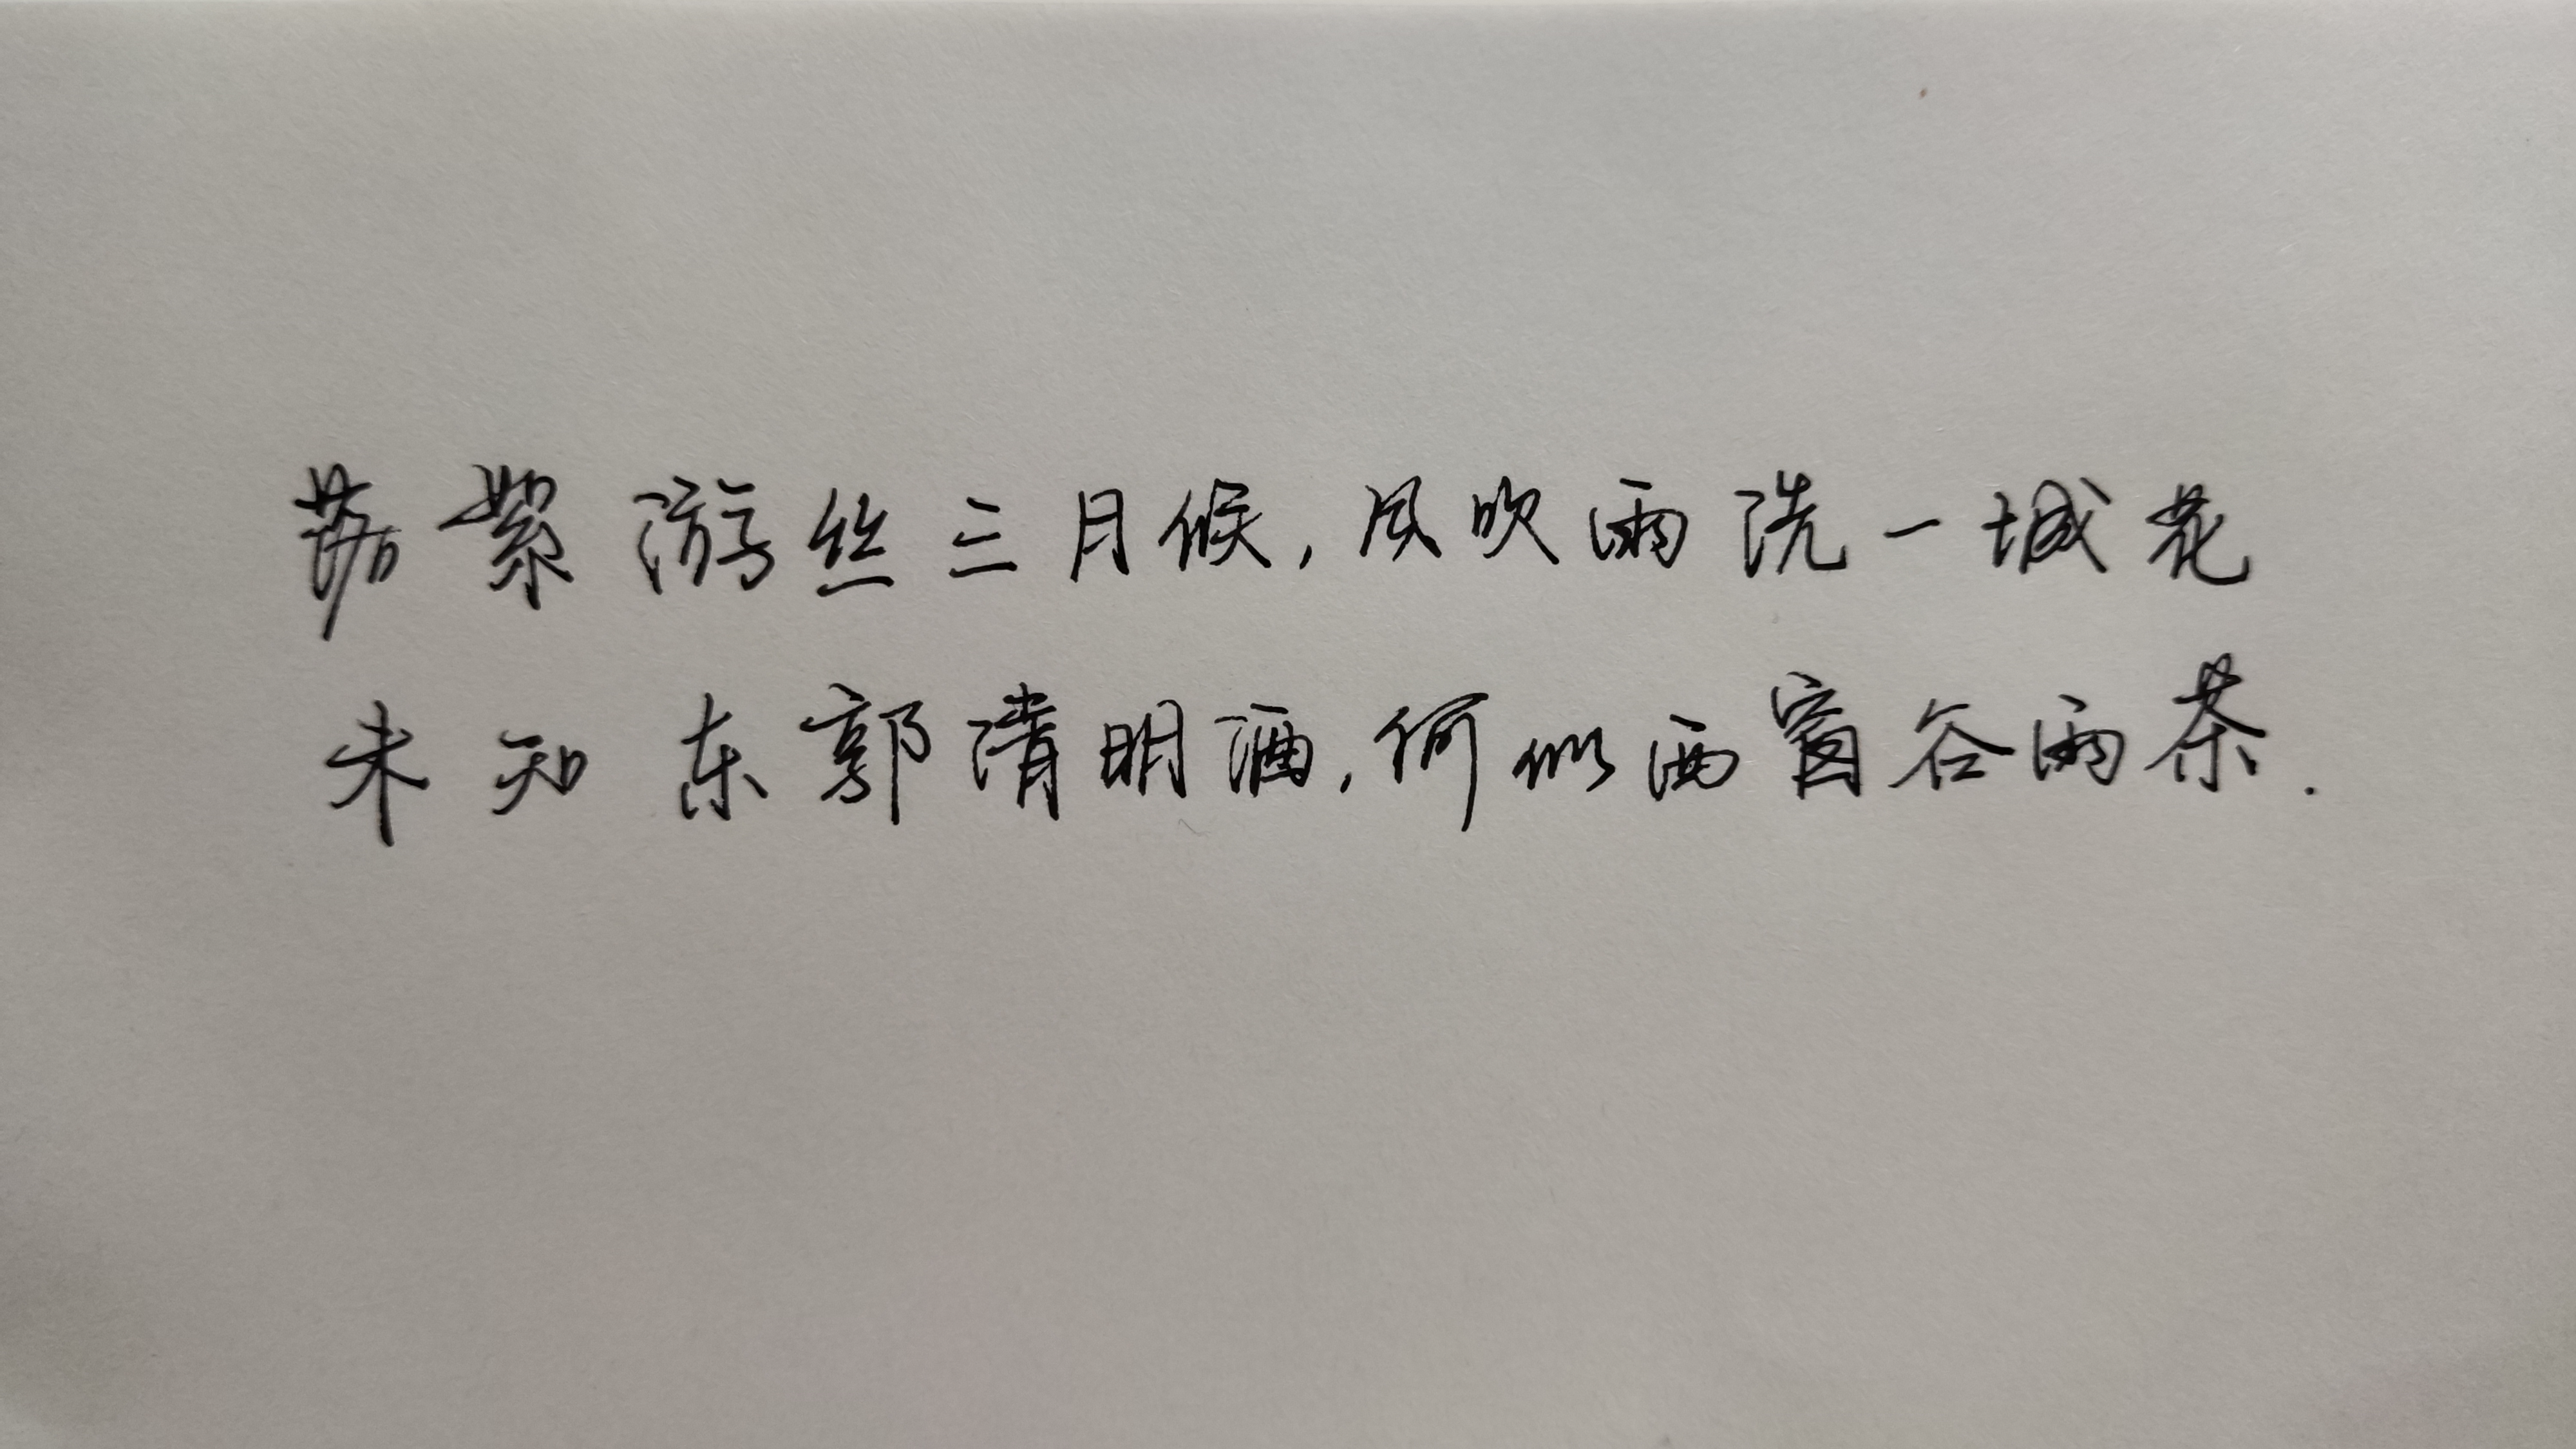 落絮游丝三月候,风吹雨洗一城花
未知东郭清明酒,何似西窗谷雨茶.